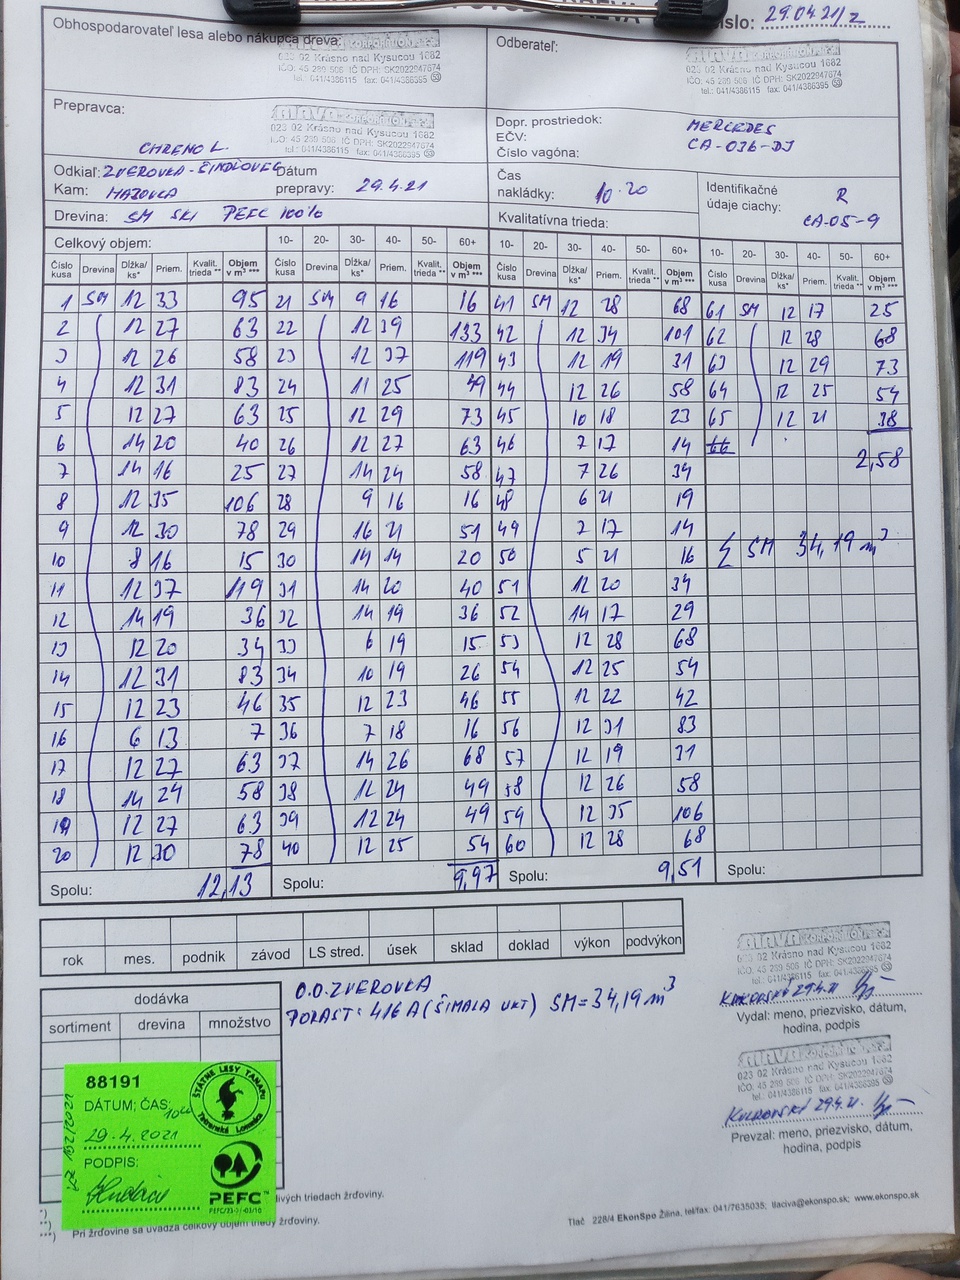 Číslo: 29.04.21/2
Obhospodarovateľ lesa alebo nákupca dreva:
023 02 Krásno nad Kysucou 1682
IČO: 45 289 506 IČ DPH: SK2022947674
tel.: 041/4386115 fax: 041/4386395
Odberateľ:
023 02 Krásno nad Kysucou 1682
IČO: 45 289 506 IČ DPH: SK2022947674
tel.: 041/4386115 fax: 041/4386395
Prepravca:
CHREŇO L.
023 02 Krásno nad Kysucou 1682
IČO: 45 289 506 IČ DPH: SK2022947674
tel.: 041/4386115 fax: 041/4386395
Dopr. prostriedok: MERCEDES
EČV: CA-036-DJ
Číslo vagóna:
Odkiaľ: ZVEROVKA - ŠINDĽOVEC
Kam:
Dátum prepravy: 29.4.21
Čas nakládky: 10.20
Identifikačné údaje ciachy: R CA-05-9
Drevina: SM SKI PEFC 100%
Kvalitatívna trieda:
Celkový objem: 10- 20- 30- 40- 50- 60+ 10- 20- 30- 40- 50- 60+ 10- 20- 30- 40- 50- 60+
Číslo kusa Drevina Dĺžka/ks* Priem. Kvalit. trieda ** Objem v m³ *** Číslo kusa Drevina Dĺžka/ks* Priem. Kvalit. trieda ** Objem v m³ *** Číslo kusa Drevina Dĺžka/ks* Priem. Kvalit. trieda ** Objem v m³ *** Číslo kusa Drevina Dĺžka/ks* Priem. Kvalit. trieda ** Objem v m³ ***
1 SM 12 33 95 21 SM 9 16 16 41 SM 12 28 68 61 SM 12 17 25
2 12 27 63 22 12 39 133 42 12 34 101 62 12 28 68
3 12 26 58 23 12 37 119 43 12 19 31 63 12 29 73
4 12 31 83 24 11 25 49 44 12 26 58 64 12 25 54
5 12 27 63 25 12 29 73 45 10 18 23 65 12 21 38
6 14 20 40 26 12 27 63 46 7 17 14 66 2,58
7 14 16 25 27 14 24 58 47 7 26 34
8 12 35 106 28 9 16 16 48 6 21 19
9 12 30 78 29 16 21 51 49 7 17 14
10 8 16 15 30 14 14 20 50 5 21 16 Σ SM 34,19 m³
11 12 37 119 31 14 20 40 51 12 20 34
12 14 19 36 32 14 19 36 52 14 17 29
13 12 20 34 33 6 19 15 53 12 28 68
14 12 31 83 34 10 19 26 54 12 25 54
15 12 23 46 35 12 23 46 55 12 22 42
16 6 13 7 36 7 18 16 56 12 31 83
17 12 27 63 37 14 26 68 57 12 19 31
18 14 24 58 38 12 24 49 58 12 26 58
19 12 27 63 39 12 24 49 59 12 35 106
20 12 30 78 40 12 25 54 60 12 28 68
Spolu: 12,13 Spolu: 9,97 Spolu: 9,51 Spolu:
rok mes. podnik závod LS stred. úsek sklad doklad výkon podvýkon
O.O. ZVEROVKA
PORAST: 416 A (ŠIMALA UKT) SM = 34,19 m³
dodávka
sortiment drevina množstvo
023 02 Krásno nad Kysucou 1682
IČO: 45 289 506 IČ DPH: SK2022947674
tel.: 041/4386115 fax: 041/4386395
29.4.21
Vydal: meno, priezvisko, dátum, hodina, podpis
023 02 Krásno nad Kysucou 1682
IČO: 45 289 506 IČ DPH: SK2022947674
tel.: 041/4386115 fax: 041/4386395
29.4.21
Prevzal: meno, priezvisko, dátum, hodina, podpis
88191
DÁTUM; ČAS:
29.4.2021
PODPIS:
ŠTÁTNE LESY TANAPu
Tatranská Lomnica
PEFC™
livých triedach žrďoviny.
***) Pri žrďovine sa uvádza celkový objem triedy žrďoviny.
Tlač 228/4 EkonSpo Žilina, tel/fax: 041/7635035; llaciva@ekonspo.sk; www.ekonspo.sk